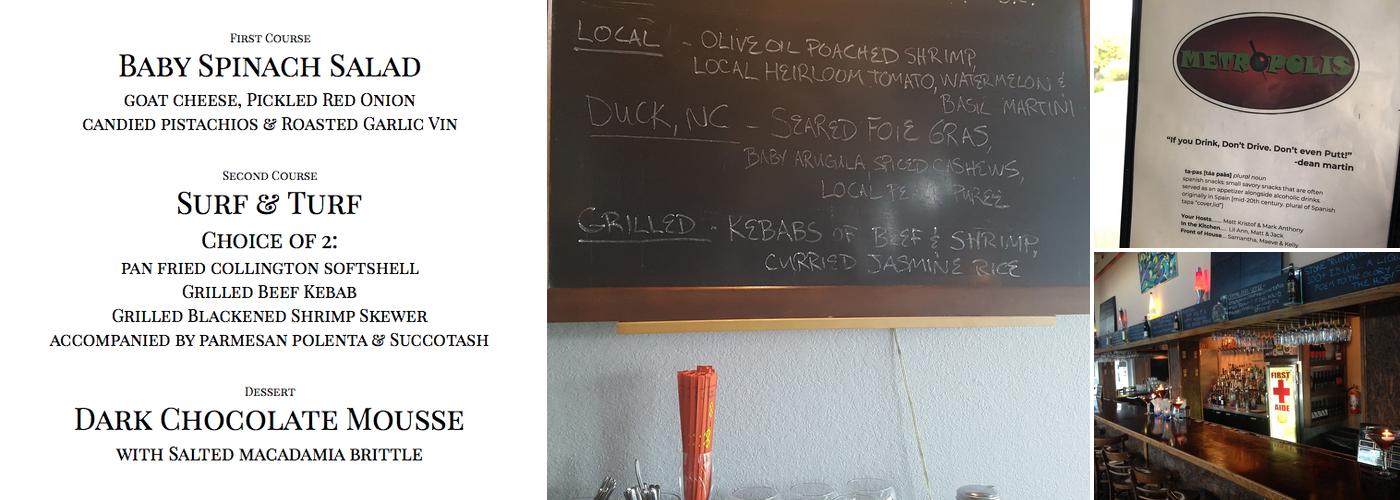 First Course
Baby Spinach Salad
goat cheese, Pickled Red Onion
candied pistachios & Roasted Garlic Vin
Second Course
Surf & Turf
Choice of 2:
pan fried collington softshell
Grilled Beef Kebab
Grilled Blackened Shrimp Skewer
accompanied by parmesan polenta & Succotash
Dessert
Dark Chocolate Mousse
with Salted macadamia brittle
LOCAL - OLIVE OIL POACHED SHRIMP,
LOCAL HEIRLOOM TOMATO, WATERMELON &
BASIL MARTINI
DUCK, NC - SEARED FOIE GRAS,
BABY ARUGULA, SPICED CASHEWS,
LOCAL PUREE
GRILLED - KEBABS OF BEEF & SHRIMP,
CURRIED JASMINE RICE
METROPOLIS
"If you Drink, Don't Drive. Don't even Putt!"
-dean martin
ta·pas [táa paàs] plural noun
spanish snacks: small savory snacks that are often
served as an appetizer alongside alcoholic drinks.
originally in Spain [mid-20th century. plural of Spanish
tapa "cover,lid"]
Your Hosts...... Matt Kristof & Mark Anthony
In the Kitchen.... Lil Ann, Matt & Jack
Front of House... Samantha, Maeve & Kelly
FIRST
AIDE